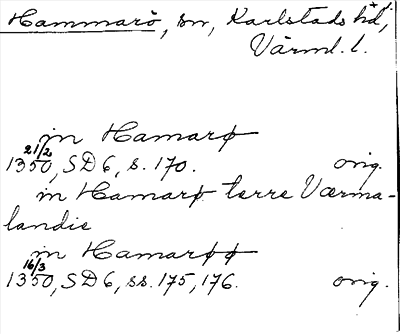 Hammarö, sn, Karlstads hd,
Värml. l.
in Hamarø
1350 21/2, SD 6, s. 170. orig.
in Hamarø terreVærma-
landie
in Hamarøø
1350 16/3, SD 6, ss. 175, 176. orig.